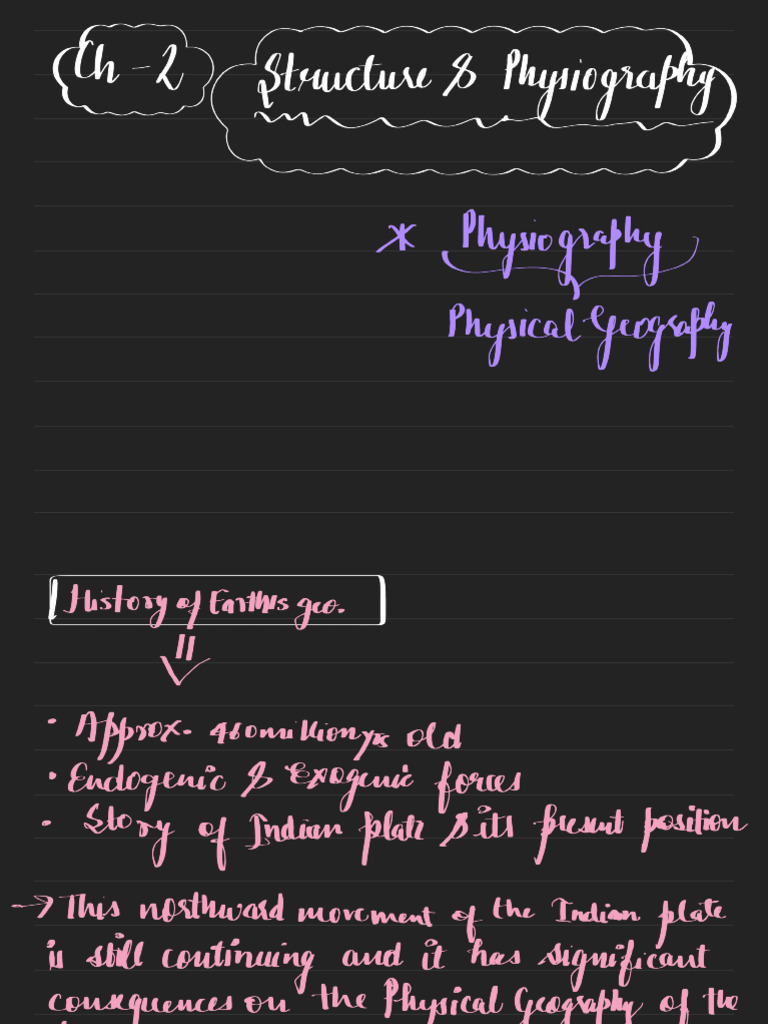 Ch - 2
Structure & Physiography
* Physiography
Physical Geography
History of Earth's geo.
• Approx. 460 million yrs old
• Endogenic & Exogenic forces
• Story of Indian plate & its present position
→ This northward movement of the Indian plate
is still continuing and it has significant
consequences on the Physical Geography of the